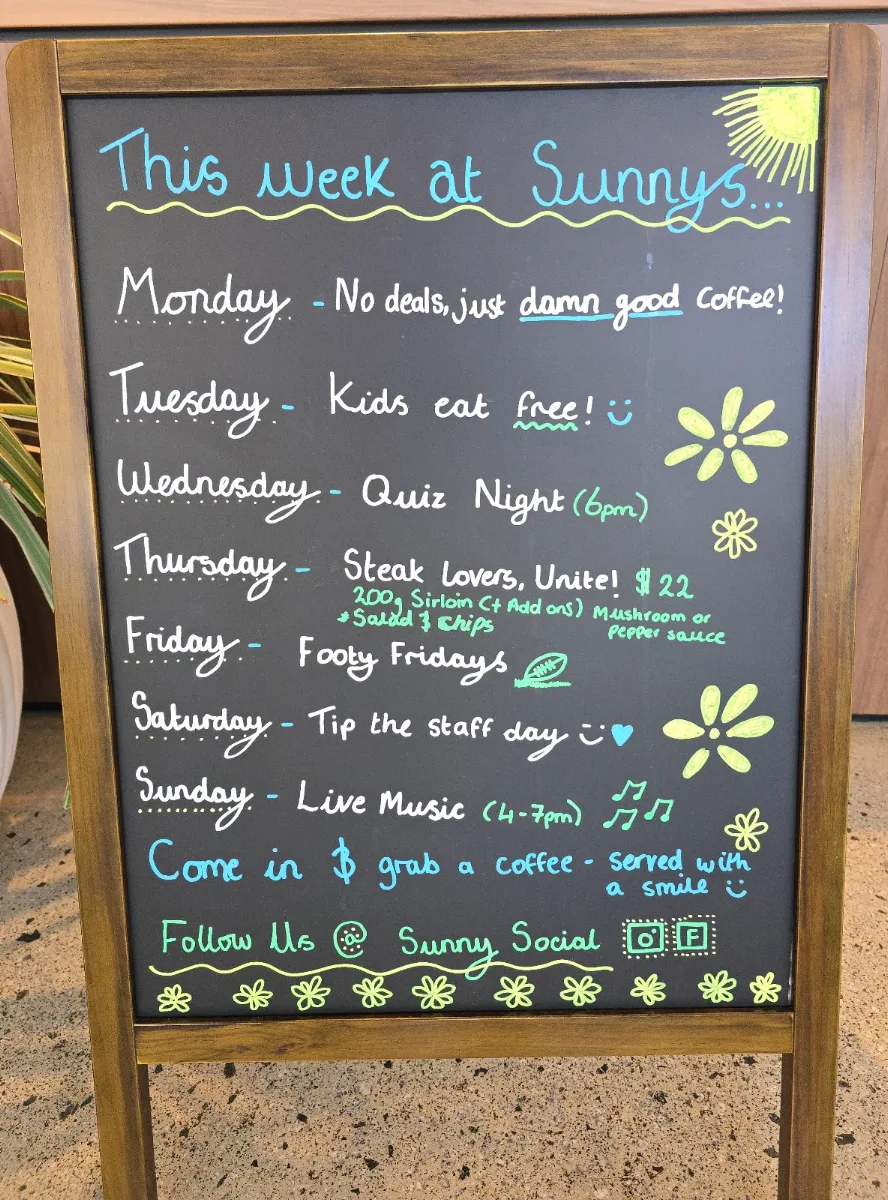 This week at Sunnys...
Monday - No deals, just damn good coffee!
Tuesday - Kids eat free! :)
Wednesday - Quiz Night (6pm)
Thursday - Steak Lovers, Unite! $22
200g Sirloin (+ Add ons) Mushroom or
+ Salad & chips pepper sauce
Friday - Footy Fridays
Saturday - Tip the staff day :)
Sunday - Live Music (4-7pm)
Come in & grab a coffee - served with
a smile :)
Follow Us @ Sunny Social F